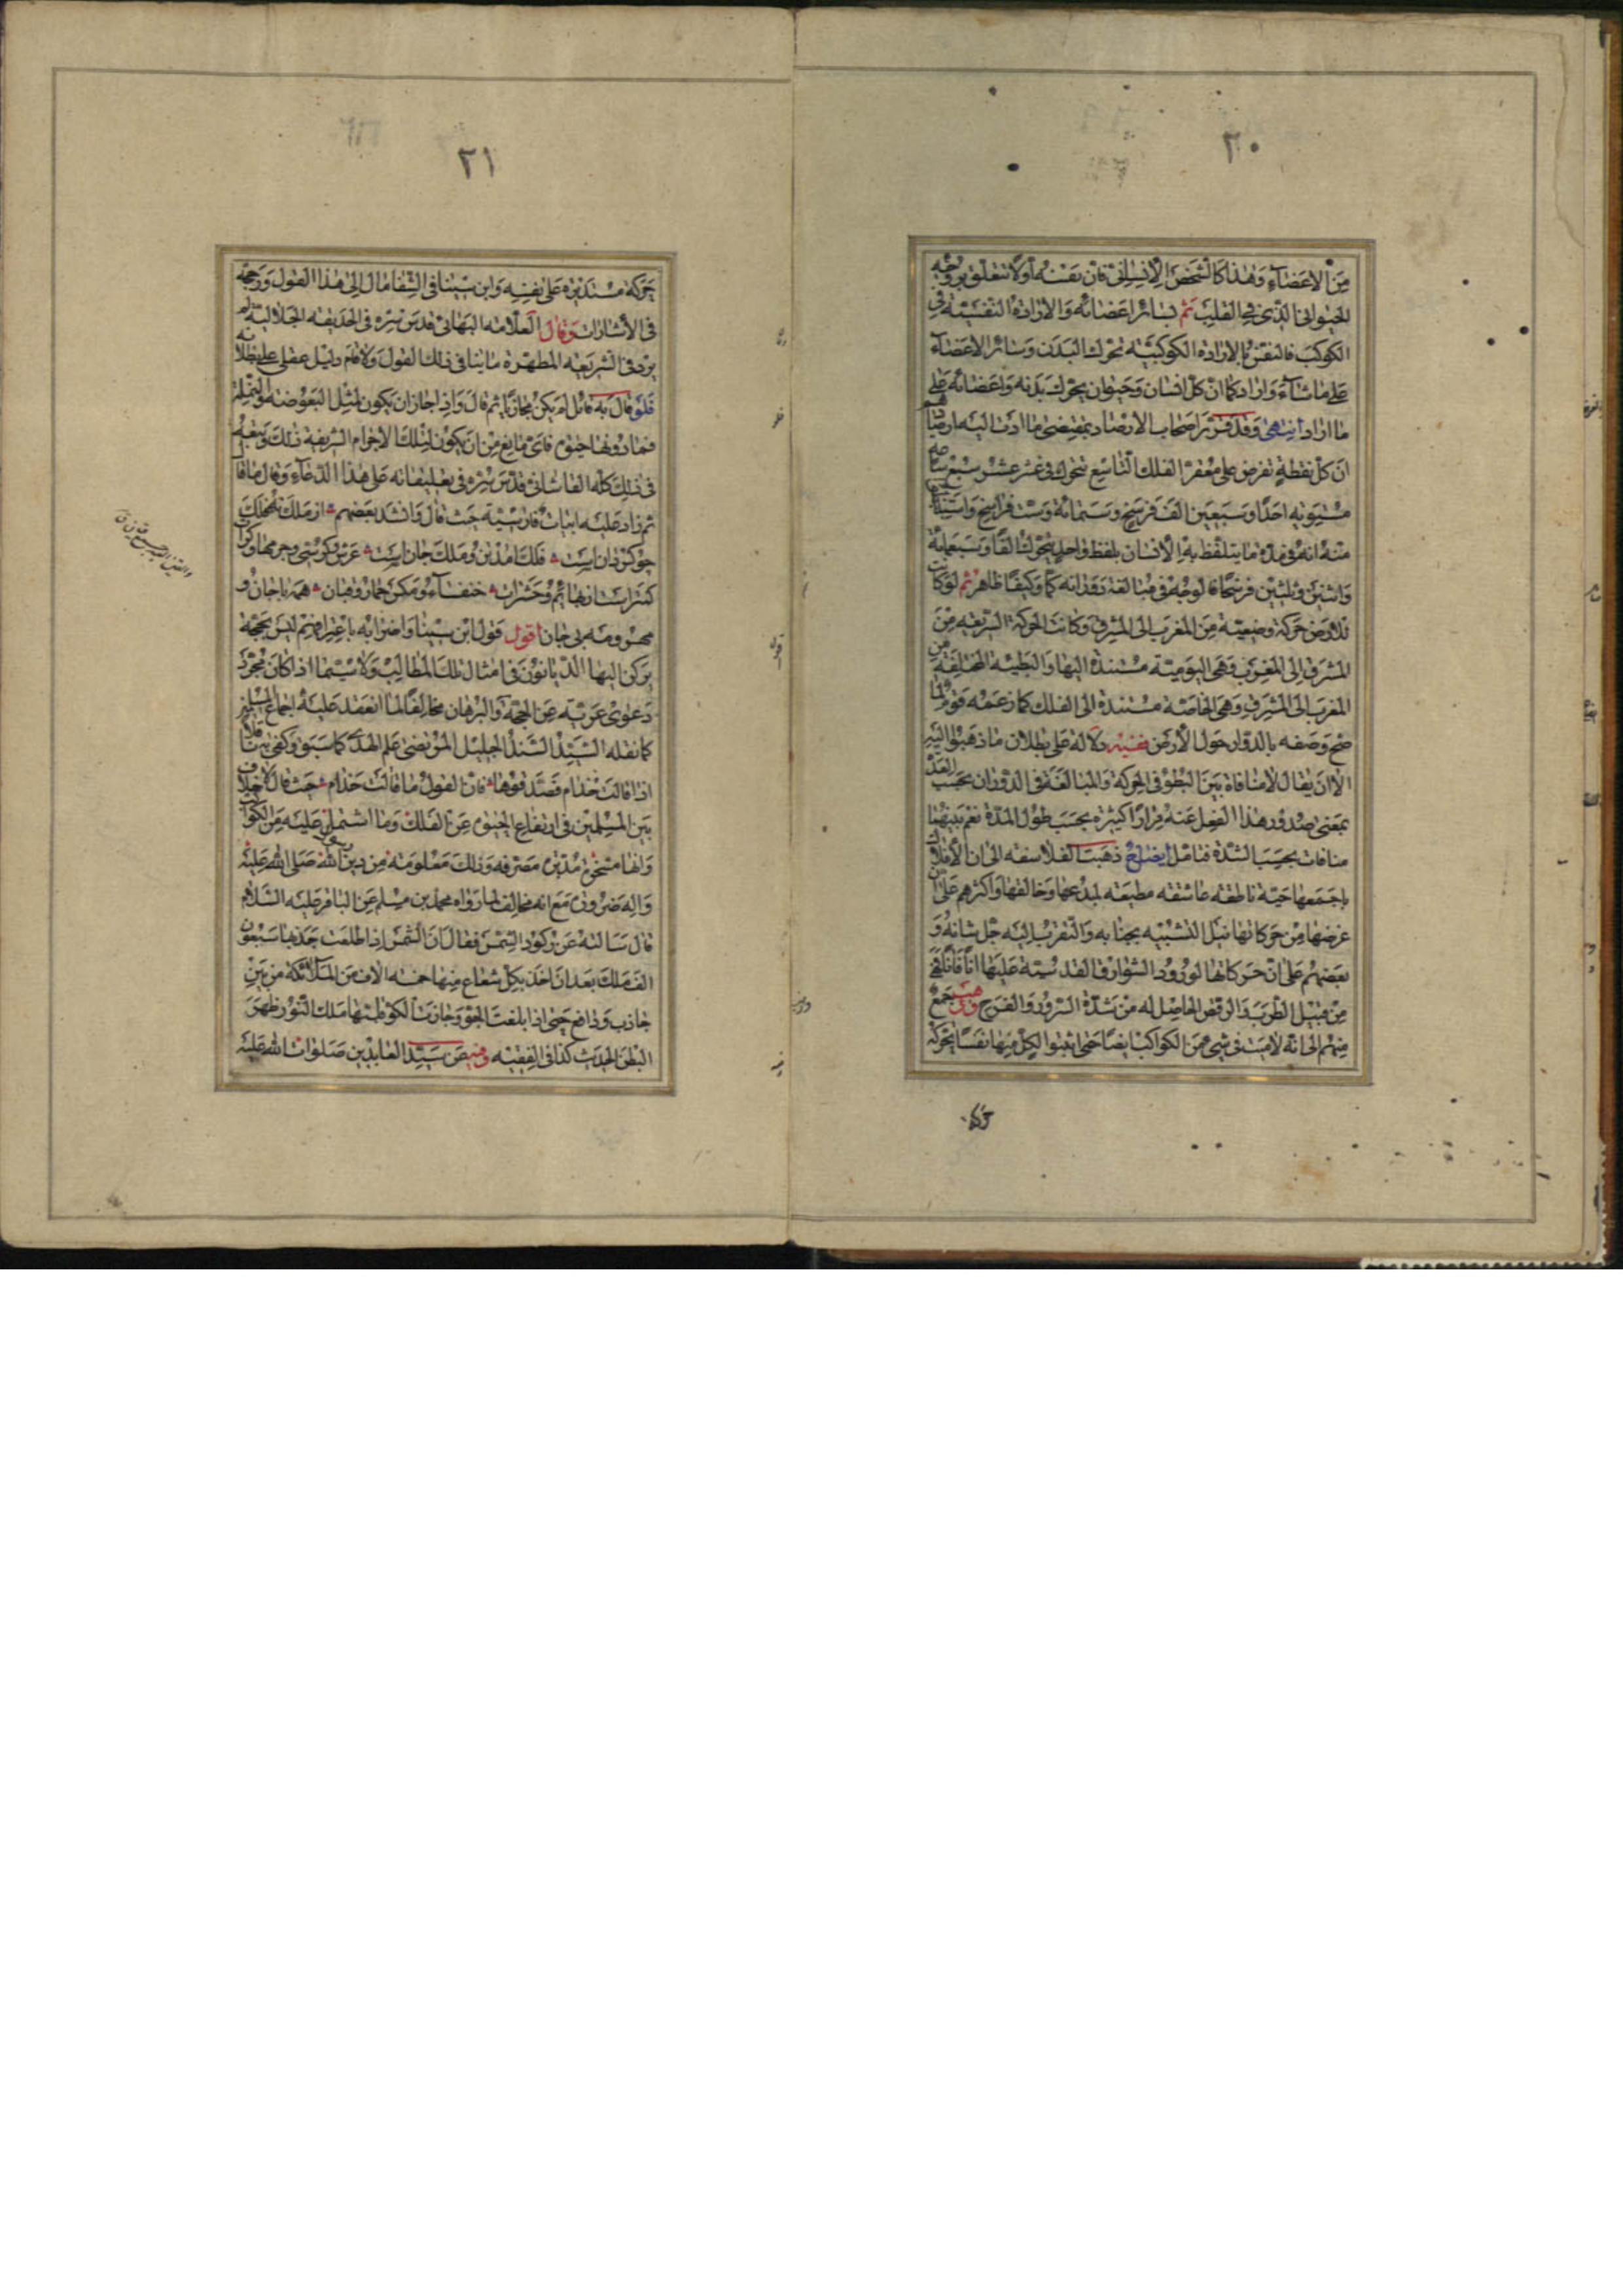 ٢٠
من الاعضاء وهذا كالشخص الانسانى فان نفسه اولا تتعلق بروحه
الحيوانى الذى فى القلب ثم بسائر اعضائه والارادة النفسية فى
الكوكب فالنفس بالارادة الكوكبية تحرك البدن وسائر الاعضاء
على ما شاء واراد كما ان كل انسان وحيوان يحرك بدنه واعضائه على
ما اراد انتهى وقد قرر اصحاب الارصاد بمقتضى ما ادت اليه ارصادهم
ان كل نقطة تفرض على مقعر الفلك التاسع تتحرك فى عشر عشر سبع ساعة
مستوية احدا وسبعين الف فرسخ وستمائة وست فراسخ واستنبطوا
منه انه فى مدة ما يتلفظ به الانسان بلفظ واحد يتحرك الفا وسبعمائة
واثنين وثلثين فرسخا فالوجه فى مبالغة دورانه كما وكيفا ظاهر ثم لو كانت
للارض حركة وضعية من المغرب الى المشرق وكانت الحركة السريعة من
المشرق الى المغرب وهى اليومية مستندة اليها والبطيئة المختلفة من
المغرب الى المشرق وهى الخاصة مستندة الى الفلك كما زعمه قوم لما
صح وصفه بالدوار حول الارض ففيه دلالة على بطلان ما ذهبوا اليه
الا ان يقال لا منافاة بين البطؤ فى الحركة والمبالغة فى الدوران بحسب العدة
بمعنى صدور هذا الفعل عنه مرارا كثيرة بحسب طول المدة نعم بينهما
منافات بحسب الشدة فتامل ايضاح ذهبت الفلاسفة الى ان الافلاك
باجمعها حية ناطقة عاشقة مطيعة لمبدعها وخالقها واكثرهم على ان
غرضها من حركاتها نيل التشبيه بجنابه والتقرب اليه جل شانه و
بعضهم على ان حركاتها لورود الشوارق القدسية عليها انا فانا فهى
من قبيل الطرب والرقص الحاصل له من شدة السرور والفرح وذهب جمع
منهم الى انه لا ميت فى شئ من الكواكب ايضا حتى اثبتوا لكل منها نفسا تحركه
حركة
٢١
حركة مستديرة على نفسه وابن سينا فى الشفا مال الى هذا القول ورجحه
فى الاشارات وقال العلامة البهائى قدس سره فى الحديقة الهلالية لم
يرد فى الشريعة المطهرة ما ينافى ذلك القول ولا قام دليل عقلى على بطلانه
فلو قال به قائل لم يكن مجازفا ثم قال واذا جاز ان يكون لمثل البعوضة والنملة
فما دونها حيوة فاى مانع من ان يكون لتلك الاجرام الشريفة ذلك وتبعه
فى ذلك كله القاشانى قدس سره فى تعليقاته على هذا الدعاء وقال ما قال
ثم زاد عليه ابيات فارسية حيث قال وانشد بعضهم از ملك نه فلك
چو گردان است فلك اندر تن و ملك جان است عرش و كرسى و جرمهاى كرات
كمتر است از بهائم و حشرات خنفساء و مگس حمار و قبان همه با جان و
مهر و مه بى جان اقول قول ابن سينا واضرابه باعترافهم ليس بحجة
يركن اليها الديانون فى امثال تلك المطالب ولا سيما اذا كان مجرد
دعوى عرية عن الحجة والبرهان مخالفا لما انعقد عليه اجماع المسلمين
كما نقله السيد السند الجليل المرتضى علم الهدى كما سبق وكفى به ناقلا
اذا قالت حذام فصدقوها فان القول ما قالت حذام حيث قال لا خلاف
بين المسلمين فى ارتفاع الحيوة عن الفلك وما اشتمل عليه من الكواكب
وانها مسخرة مدبرة مصرفة وذلك معلومة من دين رسول الله صلى الله عليه
واله ضرورة مع انه مخالف لما رواه محمد بن مسلم عن الباقر عليه السلام
قال سالته عن ركود الشمس فقال ان الشمس اذا طلعت جذبها سبعون
الف ملك بعد ان اخذ بكل شعاع منها خمسة الاف من الملائكة من بين
جاذب ودافع حتى اذا بلغت الجو وجازت الكو قلبها ملك النور ظهر
البطن الحديث كذا فى الفقيه وفيه عن سيد العابدين صلوات الله عليه